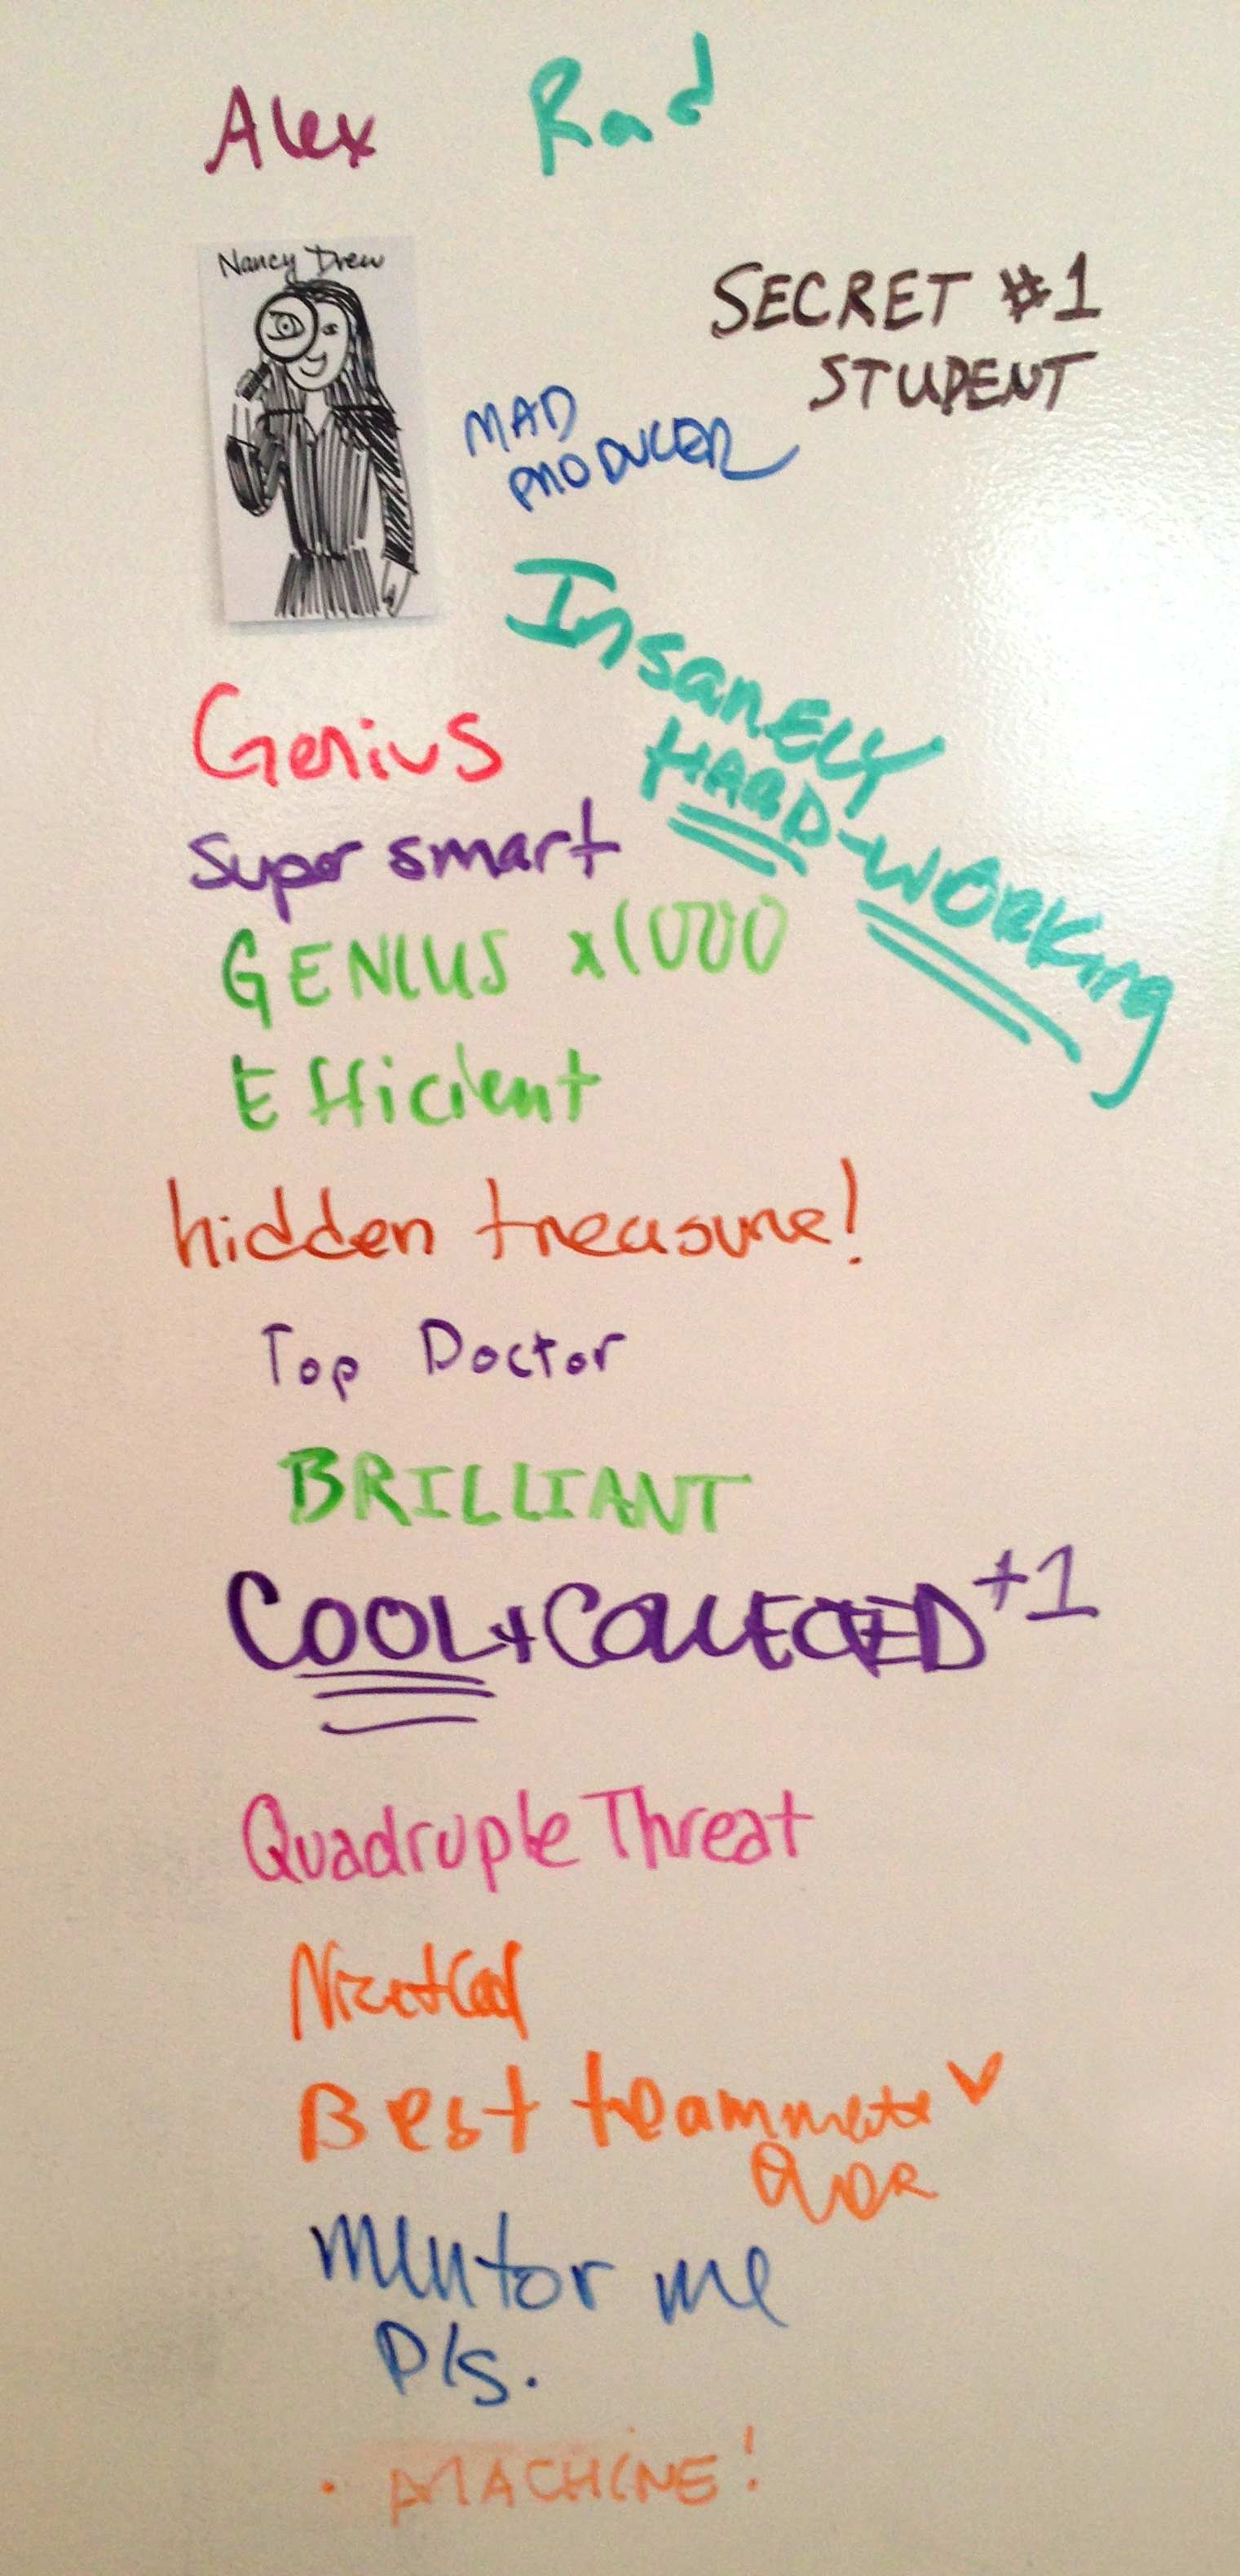 Alex Rad
Nancy Drew
SECRET #1
STUDENT
MAD
PRODUCER
Insanely
HARD-WORKing
Genius
super smart
GENIUS x1000
Efficient
hidden treasure!
Top Doctor
BRILLIANT
COOL + COLLECTED +1
Quadruple Threat
Nice + Cool
Best teammate
ever
mentor me
pls.
. MACHINE!